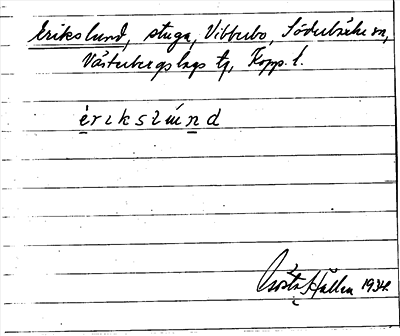 Erikslund, stuga, Vibberbo, Söderbärke sn,
Västerbergslags tg, Kopp. l.
èrikslúnd
Gösta Hallen 1934.